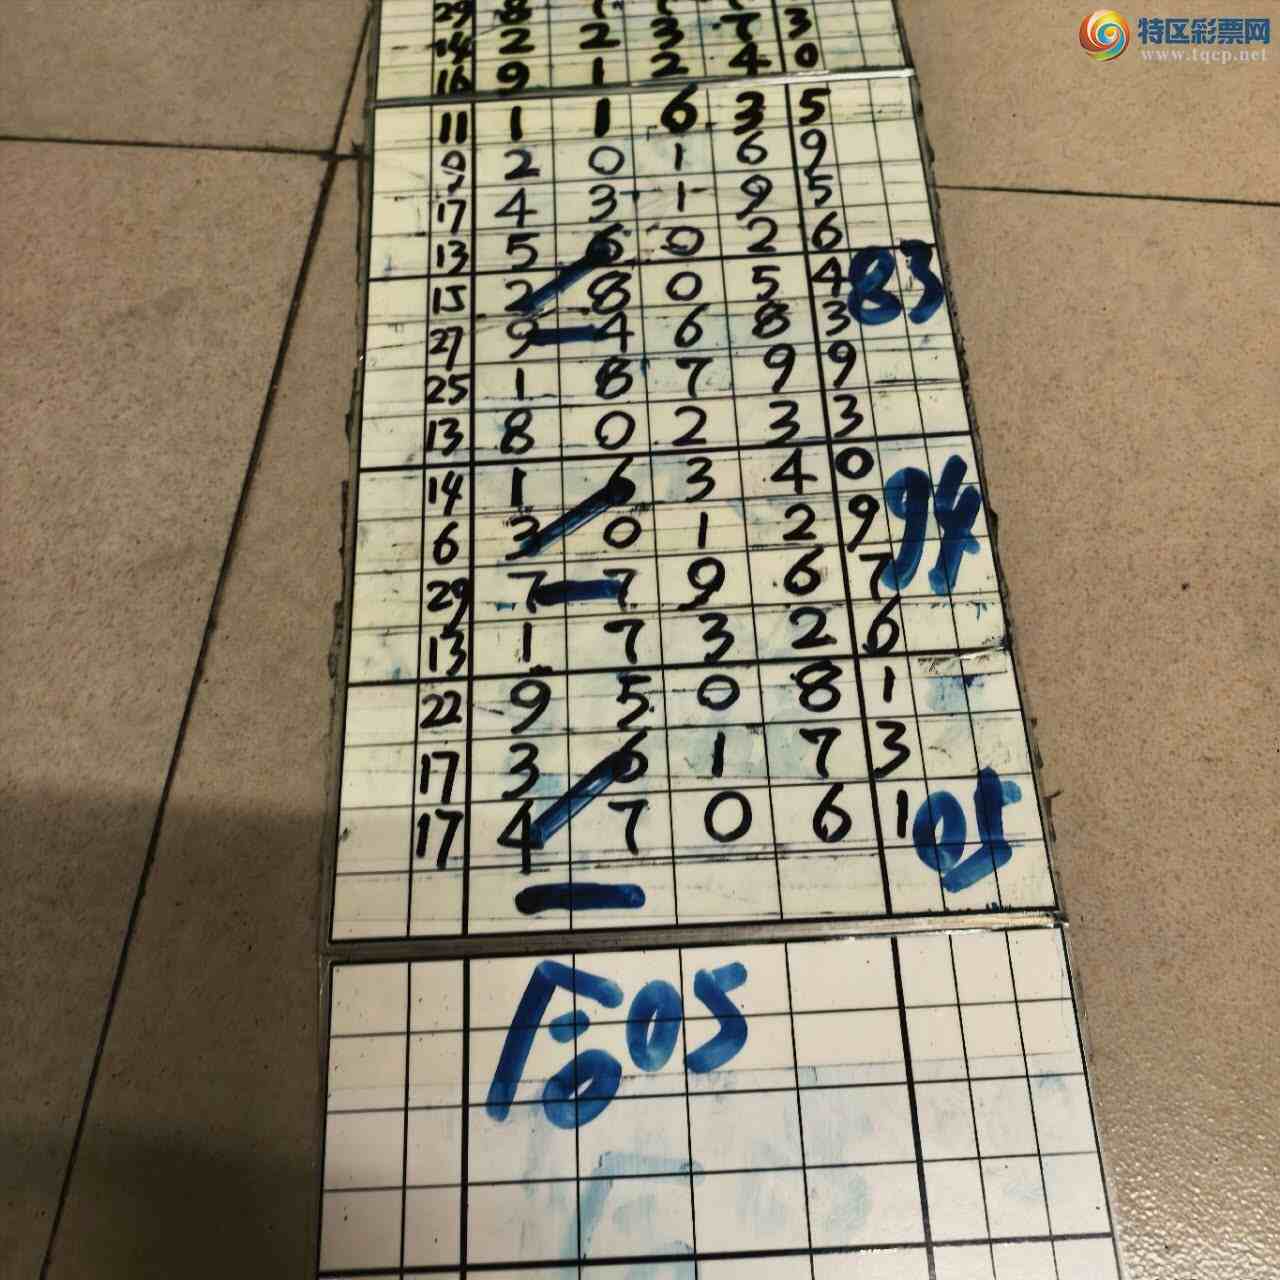 特区彩票网
www.tqcp.net
29 8
14 2 2 3 7 3
16 9 1 2 4 0
11 1 1 6 3 5
9 2 0 1 6 9
17 4 3 1 9 5
13 5 6 0 2 6
15 2 8 0 5 4 83
27 9 4 6 8 3
25 1 8 7 9 9
13 8 0 2 3 3
14 1 6 3 4 0
6 3 0 1 2 9 94
29 7 7 9 6 7
13 1 7 3 2 6
22 9 5 0 8 1
17 3 6 1 7 3
17 4 7 0 6 1 05
合05